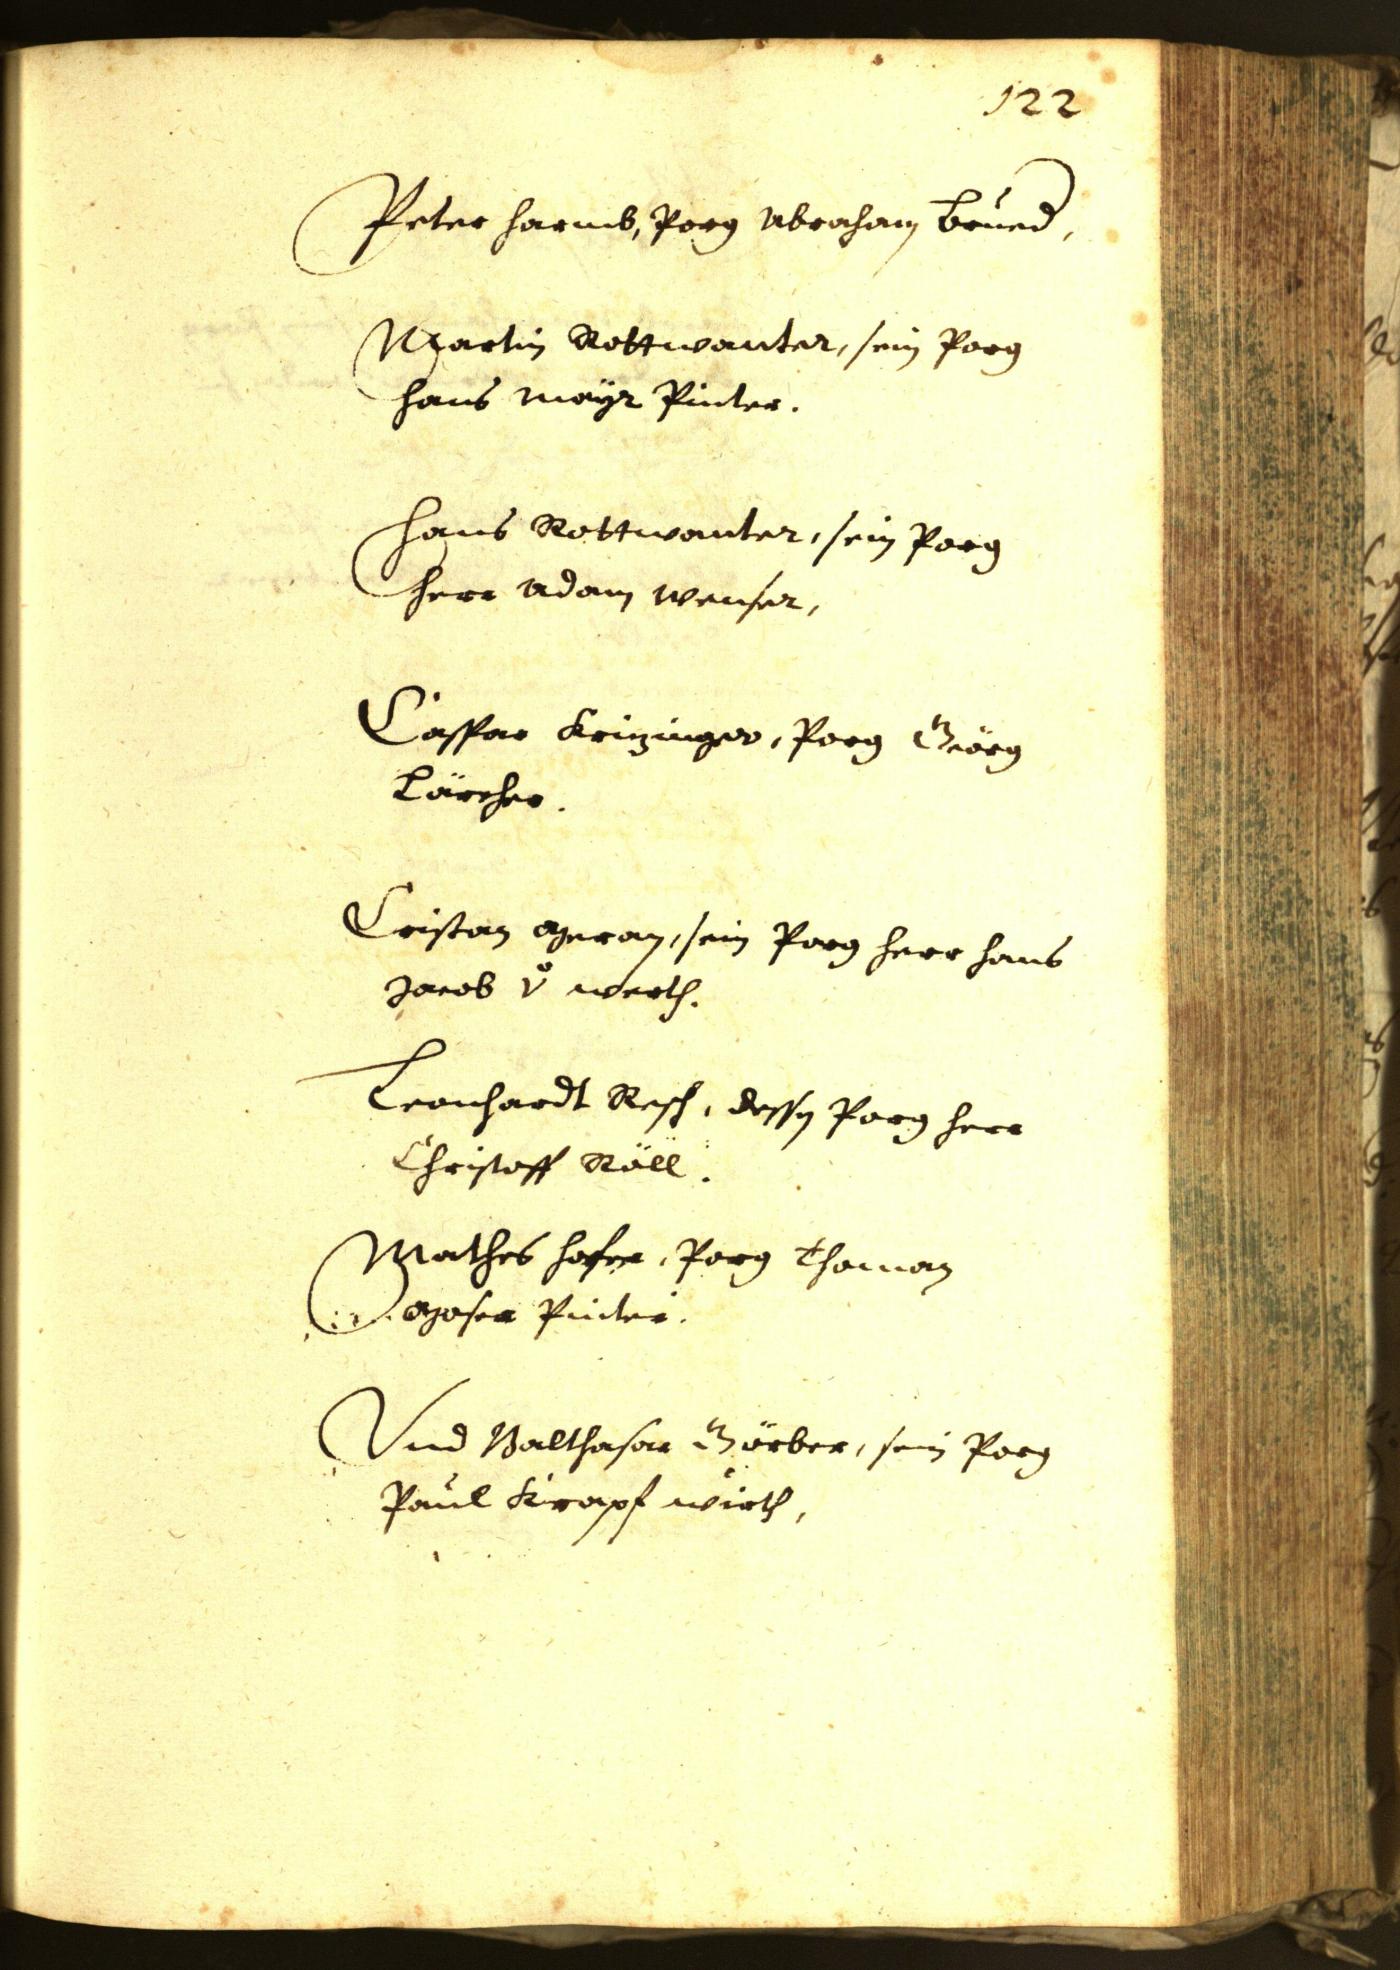 122
Peter Harmb, Porg Abraham Brued,
Martin Rottwanter, sein Porg
Hans Mayr Pinter.
Hans Rottwanter, sein Porg
Herr Adam Wenser,
Casspar Krizinger, Porg Geörg
Lärcher.
Cristan Meran, sein Porg Herr Hans
Jacob v Werth.
Leonhardt Resch, dessen Porg Herr
Christoff Röll.
Mathes Hofer, Porg Thoman
Moser Pinter.
Vnd Balthasar Görber, sein Porg
Paul Krapf Wirth,